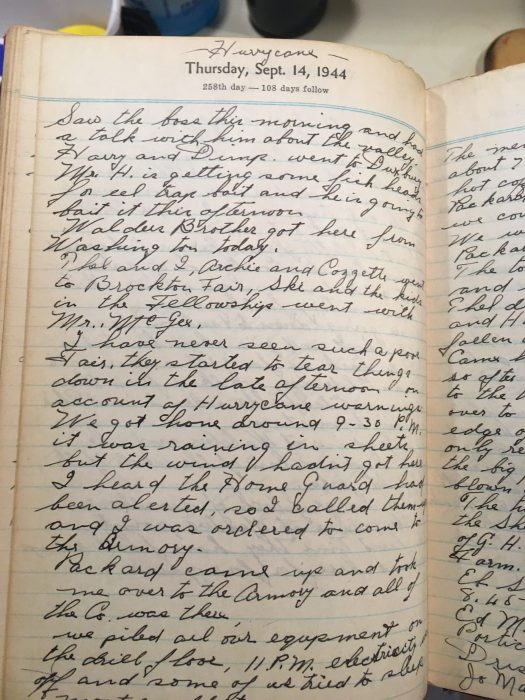 Hurrycane
Thursday, Sept. 14, 1944
258th day — 108 days follow
Saw the boss this morning and had
a talk with him about the valley.
Harry and Dump. went to Duxbury
Mr. H. is getting some fish heads
for eel trap bait and he is going to
bait it this afternoon
Waldens Brother got here from
Washington today.
Thel and I, Archie and Cozzette went
to Brockton Fair, Ske and the kids
in the Fellowship went with
Mr. McGee.
I have never seen such a poor
Fair, they started to tear things
down in the late afternoon on
account of Hurrycane warnings
We got home around 9-30 P.M.
it was raining in sheets
but the wind hadn't got here
I heard the Home Guard had
been alerted, so I called them up
and I was ordered to come to
the Armory.
Packard came up and took
me over to the Armory and all of
the Co. was there,
we piled all our equepment on
the drill floor, 11 P.M. electricity
off and some of us tried to sleep
The
about 7
hot
Packard
we
We
Packard
The
and
Ethel
and H
fallen
Came
so after
to the
over to
edge of
only
the big
blown
The
the
of G. H.
Farm.
8.45
Ed M